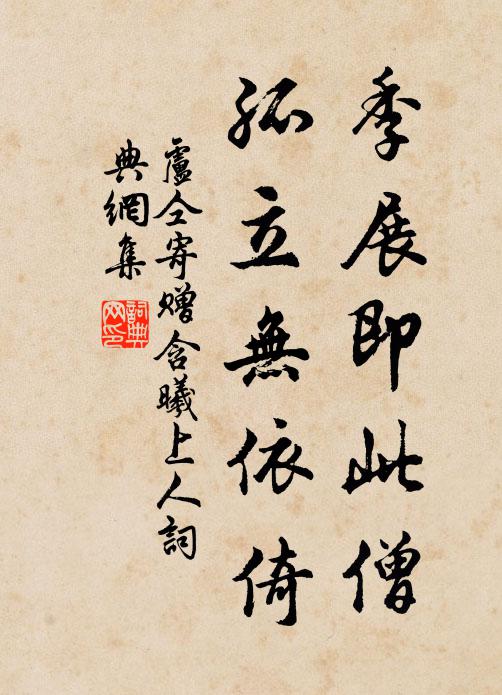 季展即此僧
孤立無依倚
盧仝寄贈含曦上人詞
典網集
詞典
网印